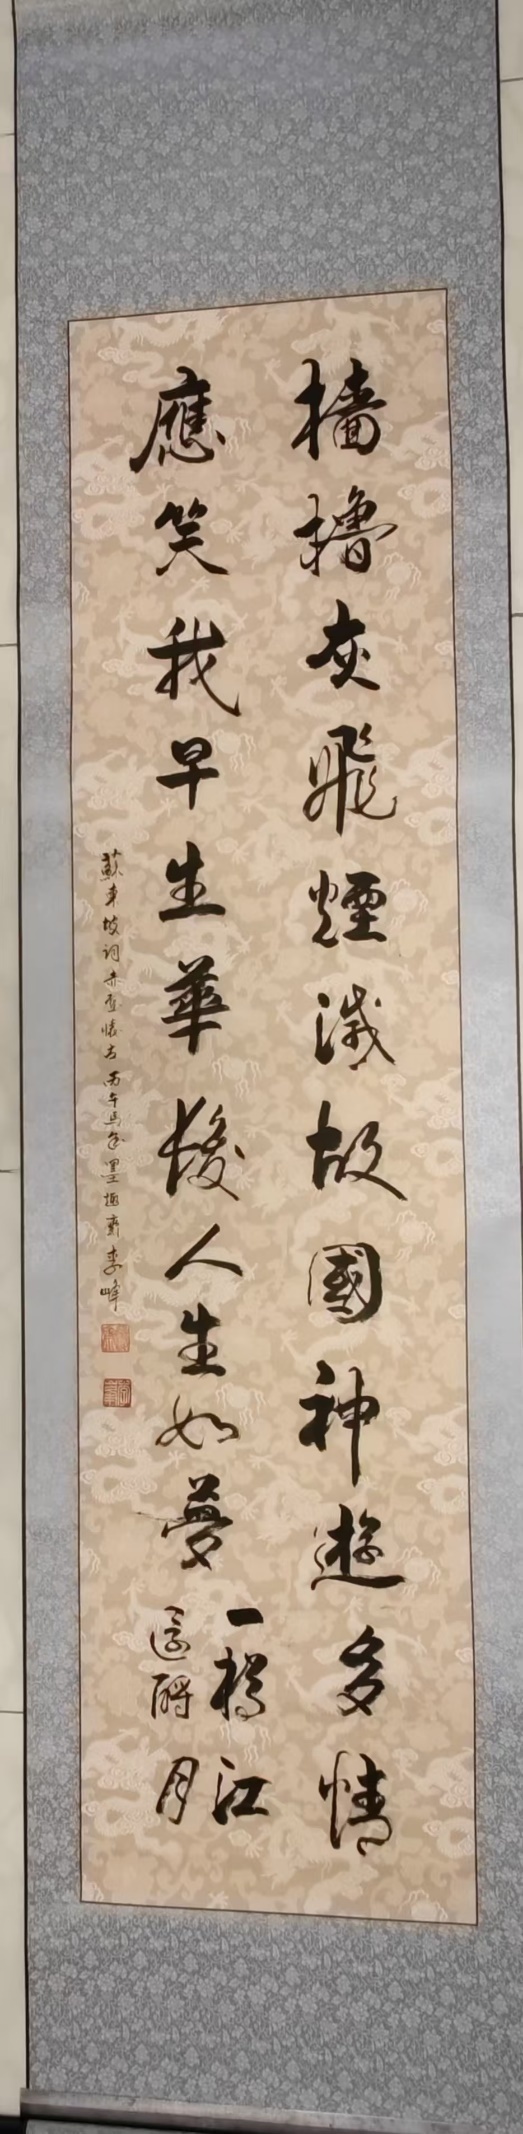 檣櫓灰飛煙滅故國神遊多情
應笑我早生華髮人生如夢
一樽
還酹
江
月
蘇東坡詞赤壁懷古丙午馬年墨極齋李峰